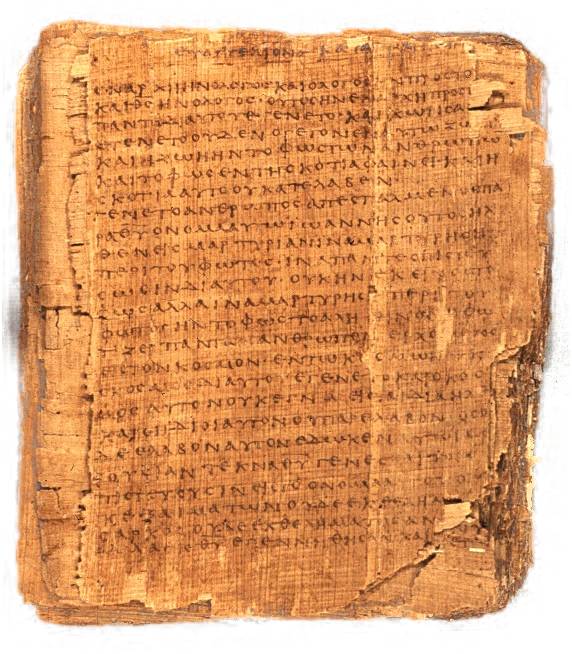 ΕΥΑΓΓΕΛΙΟΝ ΚΑΤΑ
ΕΝ ΑΡΧΗ ΗΝ Ο ΛΟΓΟΣ ΚΑΙ Ο ΛΟΓΟΣ ΗΝ ΠΡΟΣ ΤΟ
ΚΑΙ ΘΣ ΗΝ Ο ΛΟΓΟΣ ΟΥΤΟΣ ΗΝ ΕΝ ΑΡΧΗ ΠΡΟΣ
ΠΑΝΤΑ ΔΙ ΑΥΤΟΥ ΕΓΕΝΕΤΟ ΚΑΙ ΧΩΡΙΣ
ΕΓΕΝΕΤΟ ΟΥΔΕΝ Ο ΓΕΓΟΝΕΝ ΑΥΤΩ
ΚΑΙ Η ΖΩΗ ΗΝ ΤΟ ΦΩΣ ΤΩΝ ΑΝΘΡΩΠΩ
ΚΑΙ ΤΟ ΦΩΣ ΕΝ ΤΗ ΣΚΟΤΙΑ ΦΑΙΝΕΙ ΚΑΙ Η
ΣΚΟΤΙΑ ΑΥΤΟ ΟΥ ΚΑΤΕΛΑΒΕΝ
ΕΓΕΝΕΤΟ ΑΝΘΡΩΠΟΣ ΑΠΕΣΤΑΛΜΕΝΟΣ ΠΑ
ΡΑ ΘΥ ΟΝΟΜΑ ΑΥΤΩ ΙΩΑΝΝΗΣ ΟΥΤΟΣ ΗΛ
ΘΕΝ ΕΙΣ ΜΑΡΤΥΡΙΑΝ ΙΝΑ ΜΑΡΤΥΡΗΣΗ
ΠΕΡΙ ΤΟΥ ΦΩΤΟΣ ΙΝΑ ΠΑΝΤΕΣ ΠΙΣΤΕΥ
ΣΩΣΙΝ ΔΙ ΑΥΤΟΥ ΟΥΚ ΗΝ ΕΚΕΙΝΟΣ ΤΟ
ΦΩΣ ΑΛΛΑ ΙΝΑ ΜΑΡΤΥΡΗΣΗ ΠΕΡΙ ΤΟΥ
ΦΩΤΟΣ ΗΝ ΤΟ ΦΩΣ ΤΟ ΑΛΗΘΙΝΟΝ Ο ΦΩ
ΤΙΖΕΙ ΠΑΝΤΑ ΑΝΘΡΩΠΟΝ
ΕΙΣ ΤΟΝ ΚΟΣΜΟΝ ΕΝ ΤΩ ΚΟΣΜΩ ΗΝ
ΜΟΣ ΔΙ ΑΥΤΟΥ ΕΓΕΝΕΤΟ ΚΑΙ Ο ΚΟΣ
ΜΟΣ ΑΥΤΟΝ ΟΥΚ ΕΓΝΩ ΕΙΣ ΤΑ ΙΔΙΑ ΗΛ
ΚΑΙ ΟΙ ΙΔΙΟΙ ΑΥΤΟΝ ΟΥ ΠΑΡΕΛΑΒΟΝ ΟΣΟ
ΔΕ ΕΛΑΒΟΝ ΑΥΤΟΝ ΕΔΩΚΕΝ ΑΥΤΟΙΣ Ε
ΞΟΥΣΙΑΝ ΤΕΚΝΑ ΘΥ ΓΕΝΕΣΘΑΙ ΤΟΙΣ
ΠΙΣΤΕΥΟΥΣΙΝ ΕΙΣ ΤΟ ΟΝΟΜΑ
Κ ΕΞ ΑΙΜΑΤΩΝ ΟΥΔΕ ΕΚ ΘΕΛΗΜΑ
ΣΑΡΚΟΣ ΟΥΔΕ ΕΚ ΘΕΛΗΜΑΤΟΣ ΑΝ
ΑΛΛΑ ΕΚ ΘΥ ΕΓΕΝΝΗΘΗΣΑΝ ΚΑΙ